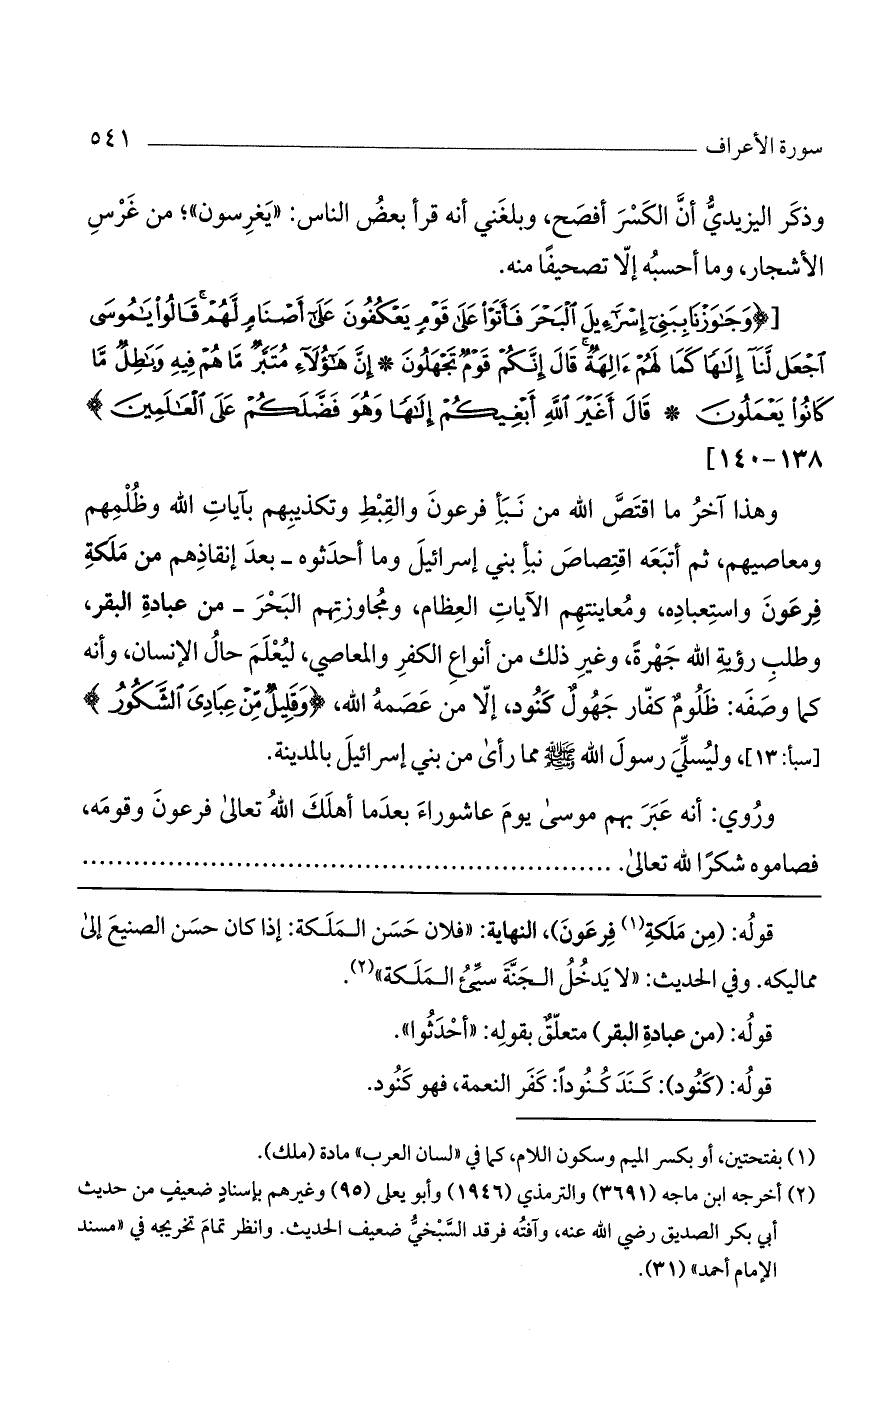 سورة الأعراف ٥٤١
وذكَر اليزيديُّ أنَّ الكَسْرَ أفصَح، وبلغَني أنه قرأ بعضُ الناس: «يَغرِسون»؛ من غَرْسِ
الأشجار، وما أحسبُه إلّا تصحيفًا منه.
[﴿وَجَٰوَزْنَا بِبَنِىٓ إِسْرَٰٓءِيلَ ٱلْبَحْرَ فَأَتَوْا۟ عَلَىٰ قَوْمٍ يَعْكُفُونَ عَلَىٰٓ أَصْنَامٍ لَّهُمْ ۚ قَالُوا۟ يَٰمُوسَى
ٱجْعَل لَّنَآ إِلَٰهًا كَمَا لَهُمْ ءَالِهَةٌ ۚ قَالَ إِنَّكُمْ قَوْمٌ تَجْهَلُونَ * إِنَّ هَٰٓؤُلَآءِ مُتَبَّرٌ مَّا هُمْ فِيهِ وَبَٰطِلٌ مَّا
كَانُوا۟ يَعْمَلُونَ * قَالَ أَغَيْرَ ٱللَّهِ أَبْغِيكُمْ إِلَٰهًا وَهُوَ فَضَّلَكُمْ عَلَى ٱلْعَٰلَمِينَ﴾
١٣٨-١٤٠]
وهذا آخرُ ما اقتَصَّ الله من نَبَأِ فرعونَ والقِبْطِ وتكذيبِهم بآياتِ الله وظُلْمِهم
ومعاصيهم، ثم أتبَعَه اقتِصاصَ نبأِ بني إسرائيلَ وما أحدَثوه ـ بعدَ إنقاذِهم من مَلَكةِ
فِرعَونَ واستِعبادِه، ومُعاينتِهم الآياتِ العِظام، ومُجاوزتِهم البَحْرَ ـ من عبادةِ البقر،
وطلبِ رؤيةِ الله جَهْرةً، وغيرِ ذلك من أنواعِ الكفرِ والمعاصي، ليُعْلَمَ حالُ الإنسان، وأنه
كما وصَفَه: ظَلُومٌ كفّار جَهُولٌ كَنُود، إلّا من عَصَمهُ الله، ﴿وَقَلِيلٌ مِّنْ عِبَادِىَ ٱلشَّكُورُ﴾
[سبأ: ١٣]، وليُسلِّيَ رسولَ الله ﷺ مما رأىٰ من بني إسرائيلَ بالمدينة.
ورُوي: أنه عَبَرَ بهم موسىٰ يومَ عاشوراءَ بعدَما أهلَكَ اللهُ تعالىٰ فرعونَ وقومَه،
فصاموه شكرًا لله تعالىٰ. ..........................................................
قولُه: (مِن مَلَكةِ(١) فِرعَونَ)، النهاية: «فلان حَسَن الـمَلَـكة: إذا كان حسَن الصنيعَ إلىٰ
مماليكه. وفي الحديث: «لا يَدخُلُ الـجَنَّةَ سيِّئُ الـمَلَـكة»(٢).
قولُه: (من عبادةِ البقر) متعلّقٌ بقولِه: «أحْدَثُوا».
قولُه: (كَنُود): كَـنَدَ كُـنُوداً: كفَر النعمة، فهو كَنُود.
(١) بفتحتين، أو بكسر الميم وسكون اللام، كما في «لسان العرب» مادة (ملك).
(٢) أخرجه ابن ماجه (٣٦٩١) والترمذي (١٩٤٦) وأبو يعلى (٩٥) وغيرهم بإسنادٍ ضعيفٍ من حديث
أبي بكر الصديق رضي الله عنه، وآفتُه فرقد السَّبْخيُّ ضعيف الحديث. وانظر تمامَ تخريجه في «مسند
الإمام أحمد» (٣١).